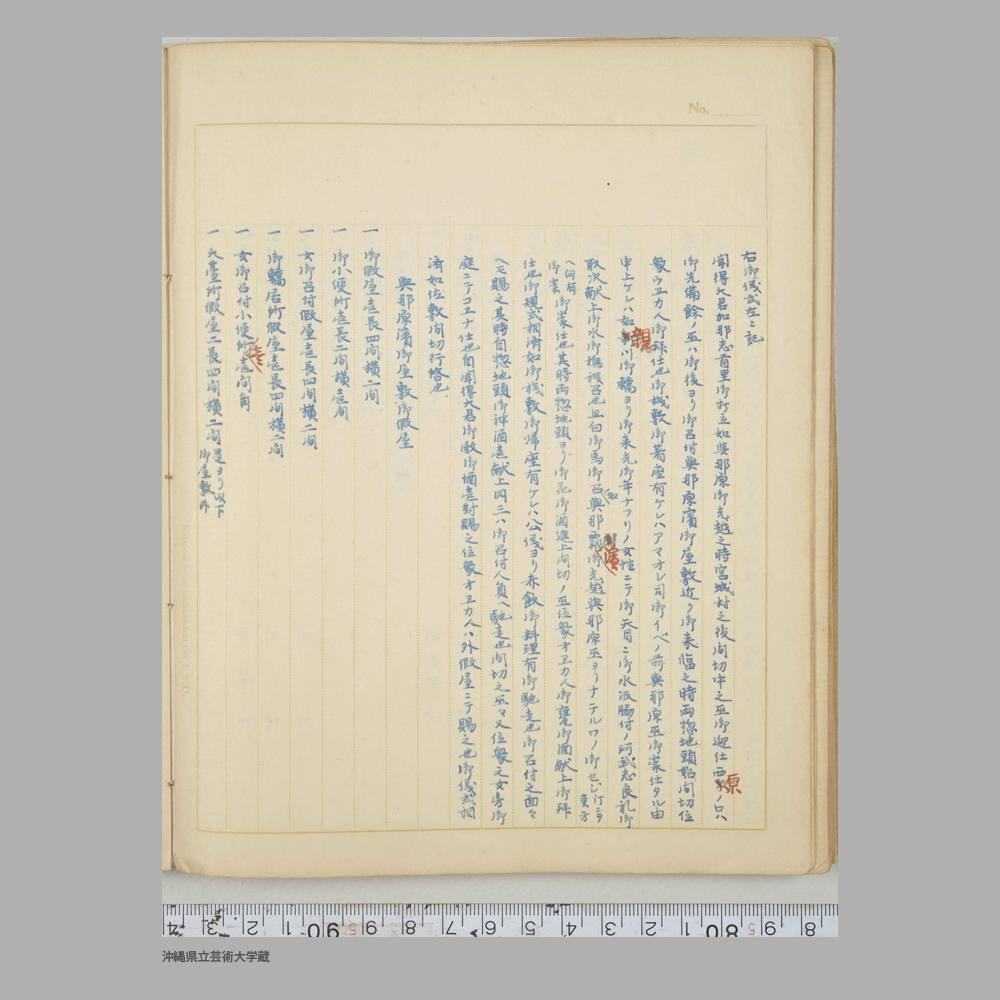 No.
右御儀式左ニ記
聞得大君加那志首里御打立如與那原御光越之時宮城村之後間切中之巫御迎仕西原ノロハ
御先備餘ノ巫ハ御後ヨリ御召付與那原濱御屋敷近ク御来臨之時両惣地頭始間切位
衆ヲエカ人御拝仕也御桟敷御着座有ケレハアマオレ司御イベノ前與那原巫御崇仕タル由
申上ケレハ如親川御轎ヨリ御来光御年ナフリノ女性ニテ御天目ニ御水汲賜付ノ阿武志良礼御
取次献上御水御撫被召也且白御馬御召與那覇濱御光越與那原巫ヨリナデルワノ御セジ
ヘ向拝御崇仕也其時両惣地頭ヨリ御花御酒進上間切ノ巫位衆オエカ人御甕御酒献上御拝
仕也御規式相濟如御桟敷御帰座有ケレハ公儀ヨリ赤飯御料理有御馳走也御召付之面々
ヘモ賜之其時自惣地頭御神酒壱献上四三ハ御召付人員ヘ馳走也間切之巫々又位衆之女房御
庭ニテコエナ仕也自聞得大君御殿御酒壱対賜之位衆オエカ人ハ外假屋ニテ賜之也御儀式相
濟如佐敷間切行啓也
與那原濱御屋敷御假屋
一 御假屋壱長四間横二間
一 御小便所壱長二間横壱間
一 女御召付假屋壱長四間横二間
一 御轎居所假屋壱長四間横二間
一 女御召付小便所壱間角
一 大臺所假屋二長四間横二間 是ヨリ以下御屋敷外
沖縄県立芸術大学蔵